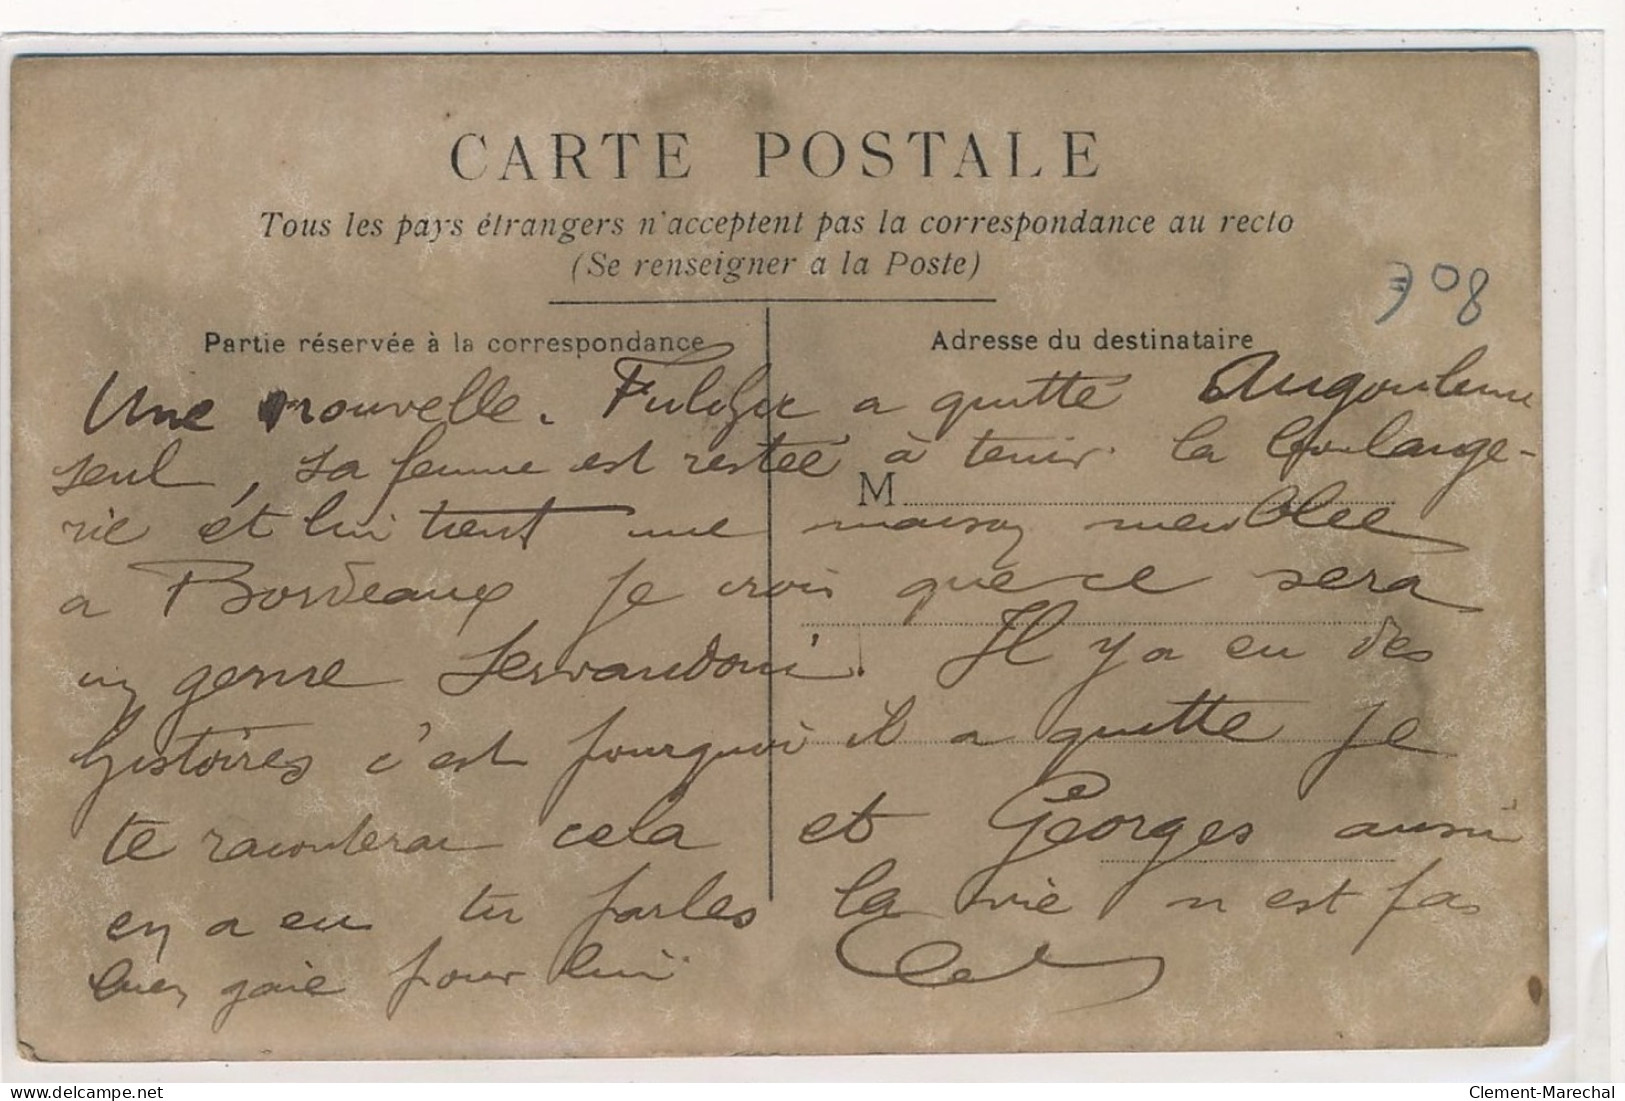 CARTE POSTALE
Tous les pays étrangers n'acceptent pas la correspondance au recto
(Se renseigner a la Poste)
708
Partie réservée à la correspondance
Adresse du destinataire
Une nouvelle. a quitté Angouleme
seul, sa femme est restée à tenir la boulange-
M
rie et lui tient une maison meublée
a Bordeaux je crois que ce sera
un genre Servandoni. Il y a eu des
histoires c'est pourquoi il a quitte je
te raconterai cela et Georges aussi
en a eu tu parles la vie n'est pas
bien gaie pour lui
delcampe.net
Clement-Marechal